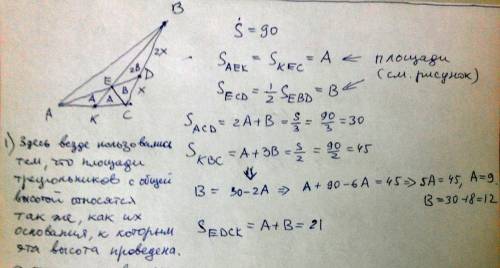 B
2x
E
2B
D
A
A
B
x
A
K
C
Ṡ = 90
S_AEK = S_KEC = A ← площади
(см. рисунок)
S_ECD = 1/2 S_EBD = B
S_ACD = 2A + B = S/3 = 90/3 = 30
S_KBC = A + 3B = S/2 = 90/2 = 45
⇓
B = 30 - 2A ⇒ A + 90 - 6A = 45 ⇒ 5A = 45, A = 9
B = 30 + 8 = 12
S_EDCK = A + B = 21
1) Здесь везде пользовались
тем, что площади
треугольников с общей
высотой относятся
так же, как их
основания, к которым
эта высота проведена.